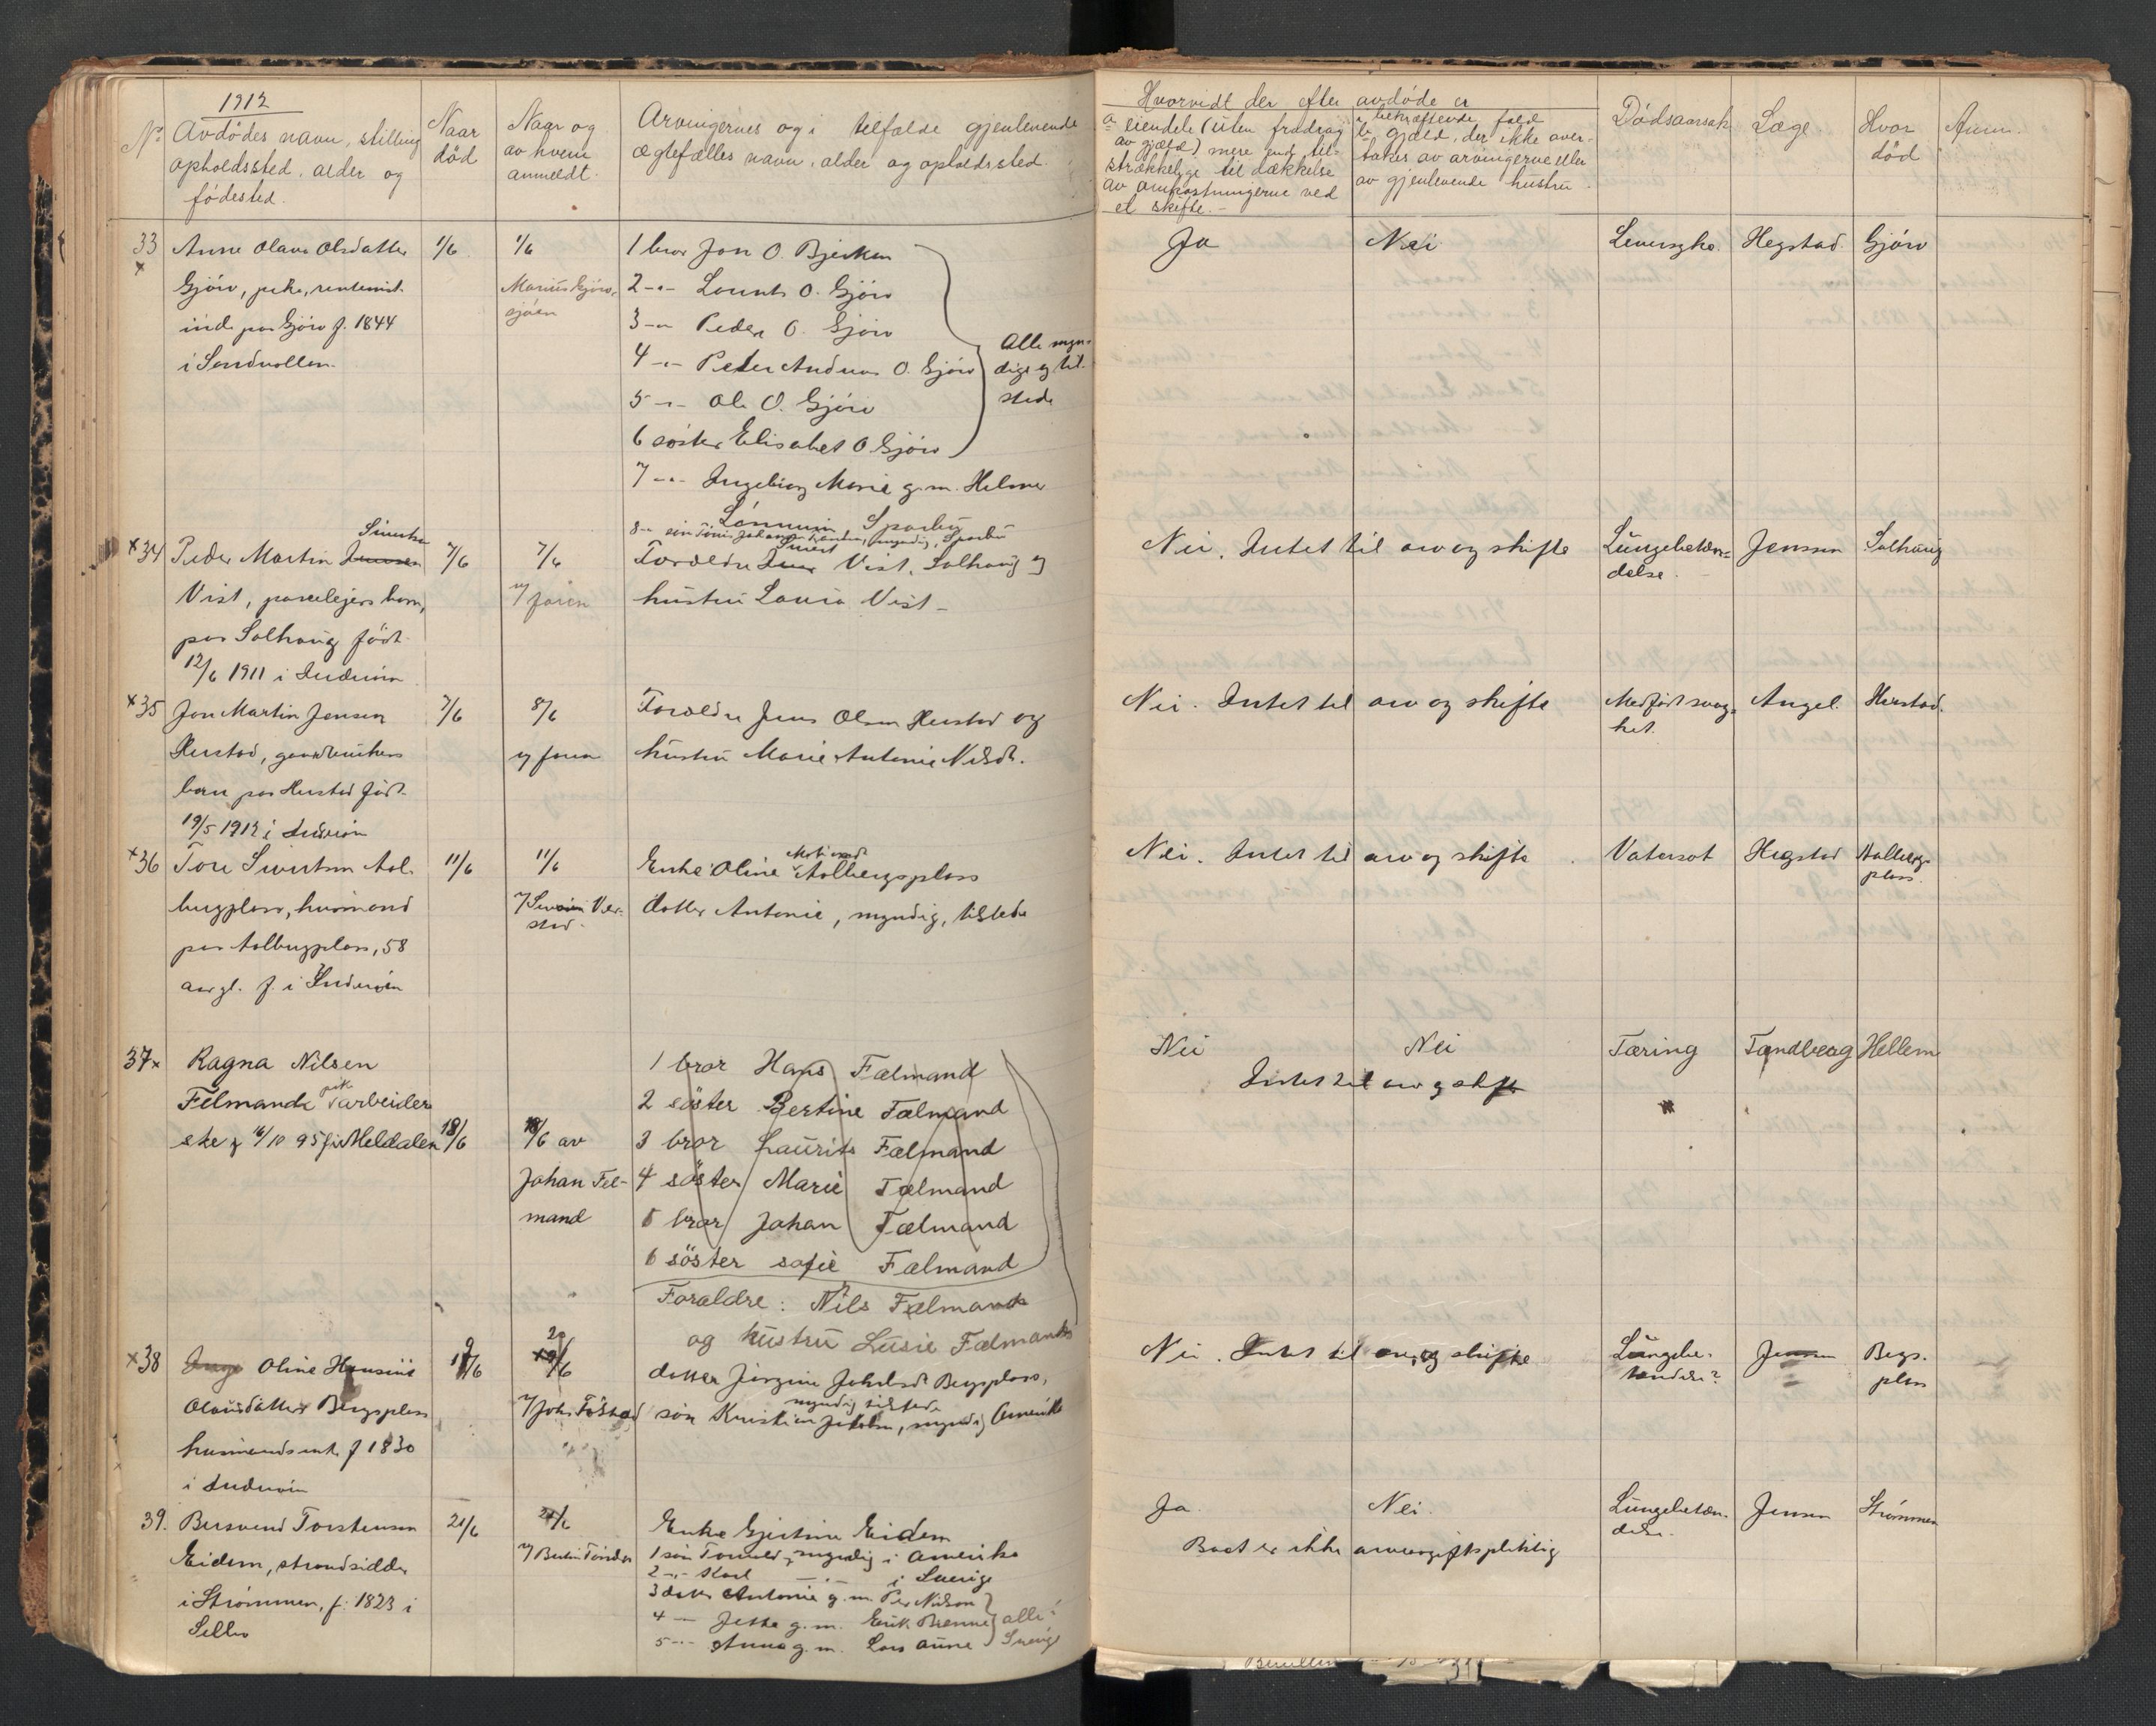 1912
No Avdödes navn, stilling
opholdssted, alder og
födested.
Naar
död
Naar og
av hvem
anmeldt.
Arvingernes og i tilfælde gjenlevende
ægtefælles navn, alder og opholdssted.
Hvorvidt der efter avdöde er
a eiendele (uten fradrag
av gjæld) mere end til-
strækkelige til dækkelse
av omkostningerne ved
et skifte.-
i bekræftende fald
b. gjæld, der ikke over-
takes av arvingerne eller
av gjenlevende hustru.
Dödsaarsak
Læge
Hvor
död
Anm.
33 Anne Olava Olsdatter
Gjörv, pike, rentenist-
inde paa Gjörv f. 1844
i Sandvollan.
1/6
1/6
Marius Gjörv,
sjöen
1 bror Jon O. Bjerkem
2 -"- Lorents O. Gjörv
3 -"- Peder O. Gjörv
4 -"- Peter Andreas O. Gjörv
5 -"- Ole O. Gjörv
6 söster Elisabet O. Gjörv
Alle myn-
dige og til-
stede
7 -"- Ingeborg Marie g.m. Helmer
Lönnum, Sparbu
Ja
Nei
Hegstad
Gjörv
x34 Peder Martin Jensen
Vist, parcelejers barn,
paa Solhaug födt
12/6 1911 i Inderöen
7/6
7/6
v/ faren
Forældre Jens Sivert Vist, Solhaug og
hustru Laura Vist-
Nei. Intet til arv og skifte
Lungebetæn-
delse.
Jenssen
Solhaug
x35 Jon Martin Jensen
Hustad, gaardbrukers
barn paa Hustad födt
19/5 1912 i Inderöen
7/6
8/6
v/ faren
Forældre Jens Olsen Hustad og
hustru Marie Antonie Nilsdt.
Nei. Intet til arv og skifte
Medfödt svag-
het.
Angel.
Hustad.
x36 Tore Sivertsen Aal-
bergplass, husmand
paa Aalbergplass, 58
aar gl. f. i Inderöen
11/6
11/6
Enke Oline Aalbergsplass
datter Antonie, myndig, tilstede
Nei. Intet til arv og skifte
Vatersot
Hegstad
Aalbergs-
plass.
37x Ragna Nilsen
Felmande pike arbeider
ske f 16/10 95 i Meldalen
18/6
18/6 av
Johan Fel-
mand
1 bror Hans Fælmand
2 söster Bertine Fælmand
3 bror Laurits Fælmand
4 söster Marie Fælmand
5 bror Johan Fælmand
6 söster Sofie Fælmand
Forældre: Nils Fælmand
og hustru Lusie Fælmand
Nei
Nei
Intet til arv og skifte
Tæring
Tandberg
Hellem
x38 Oline Hansine
Olausdatter Bergsplass
husmandsenke f 1830
i Inderöen
19/6
20/6
datter Jörgine Jakobsdt Bergsplass,
myndig tilstede
sön Kristian Jakobsen, myndig Amerika
Nei. Intet til arv og skifte
Lungebe-
tændelse?
Jensen
Bergs-
plass
39. Bersvend Torstensen
Eidem, strandsidder
i Strömmen, f. 1823 i
Selbu
21/6
21/6
Enke Gjertine Eidem
1 sön Tomeld, myndig i Amerika
2 -"- Karl -"- i Sverige
3 datter Antonie g.m. Per Nilson
4 -"- Jette g.m. Erik Brenne
5 -"- Anna g.m. Lars Aune
alle i
Sverige
Ja.
Nei.
Boet er ikke arveavgiftspliktig
Lungebetæn-
delse.
Jensen
Strömmen